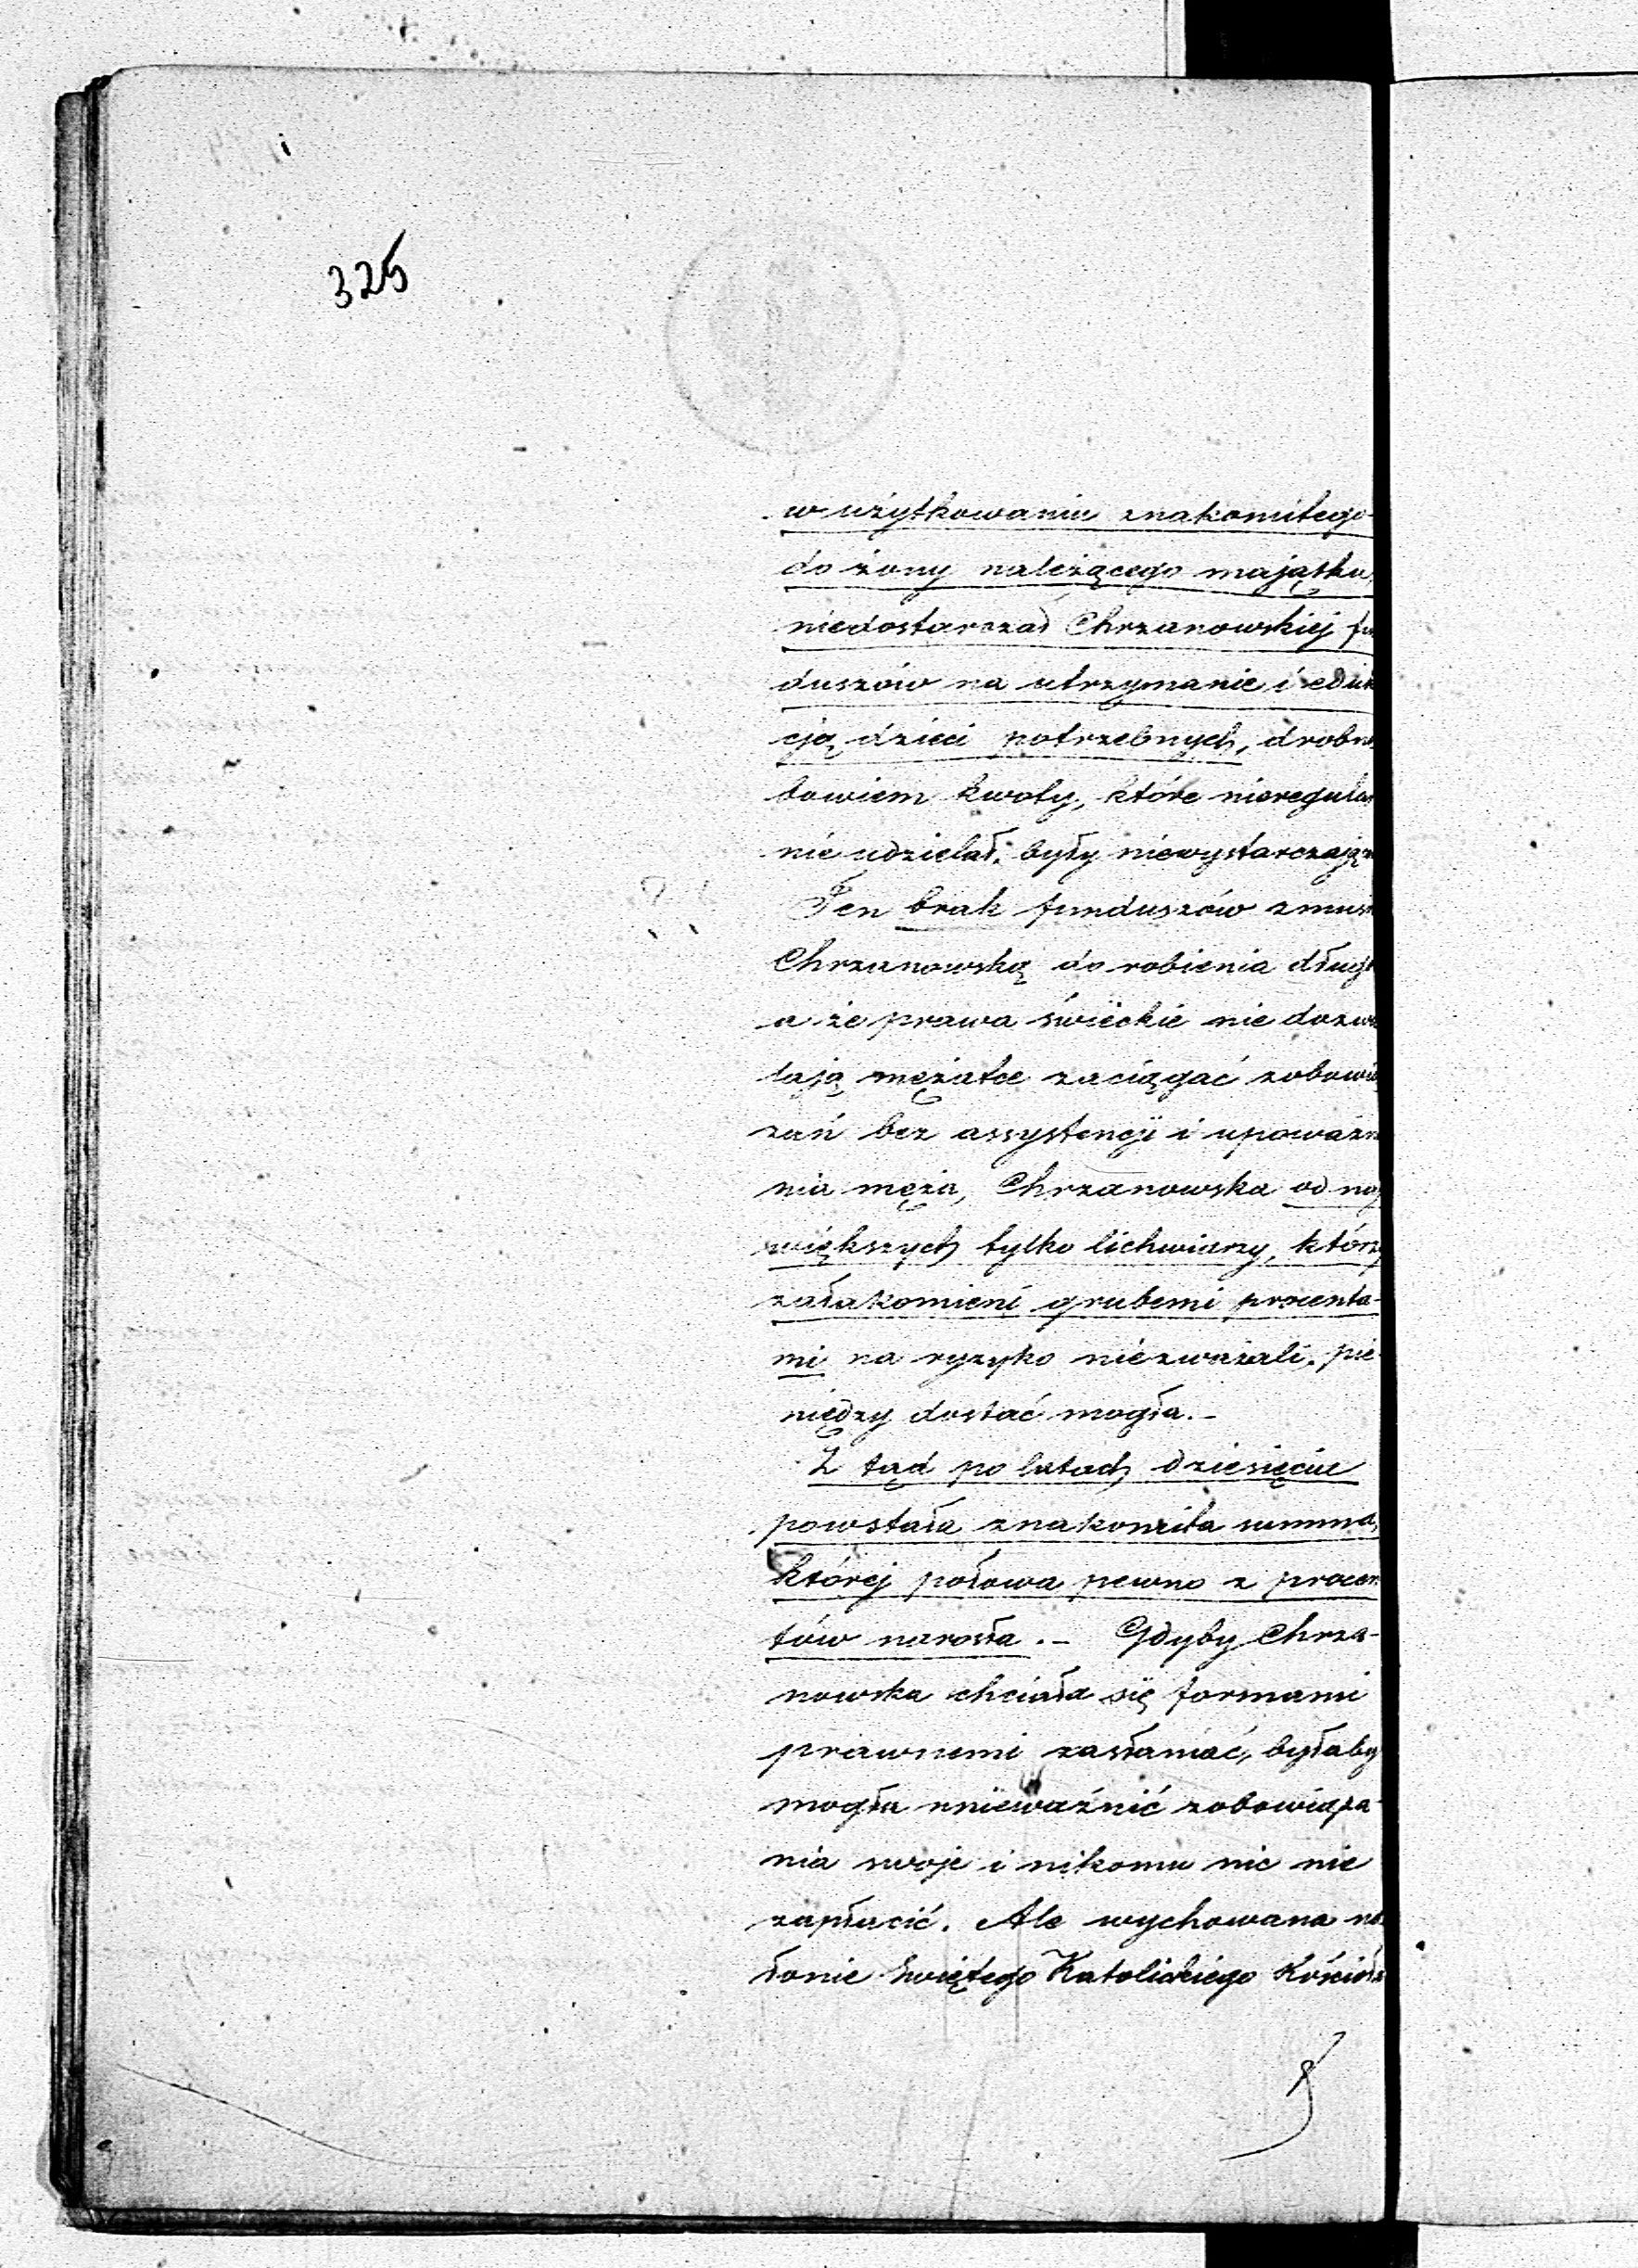 325
w użytkowaniu znakomitego
do żony należącego majątku,
niedostarczał Chrzanowskiej fun
duszów na utrzymanie i eduk
cją dzieci potrzebnych, drobne
bowiem kwoty, które nieregular
nie udzielał, były niewystarczając
Ten brak funduszów zmusi
Chrzanowską do robienia długó
a że prawa świeckie nie dozwa
lają mężatce zaciągać zobowią
zań bez assystencji i upoważn
nia męża, Chrzanowska od naj
większych tylko lichwiarzy, którzy
załakomieni grubemi procenta-
mi na ryzyko niezważali, pie-
niędzy dostać mogła.-
Z tąd po latach dziesięciu
powstała znakomita summa,
której połowa pewno z procen
tów narosła.- Gdyby Chrza-
nowska chciała się formami
prawnemi zasłaniać, byłaby
mogła unieważnić zobowiąza-
nia swoje i nikomu nic nie
zapłacić. Ale wychowana na
łonie Świętego Katolickiego Kościoła